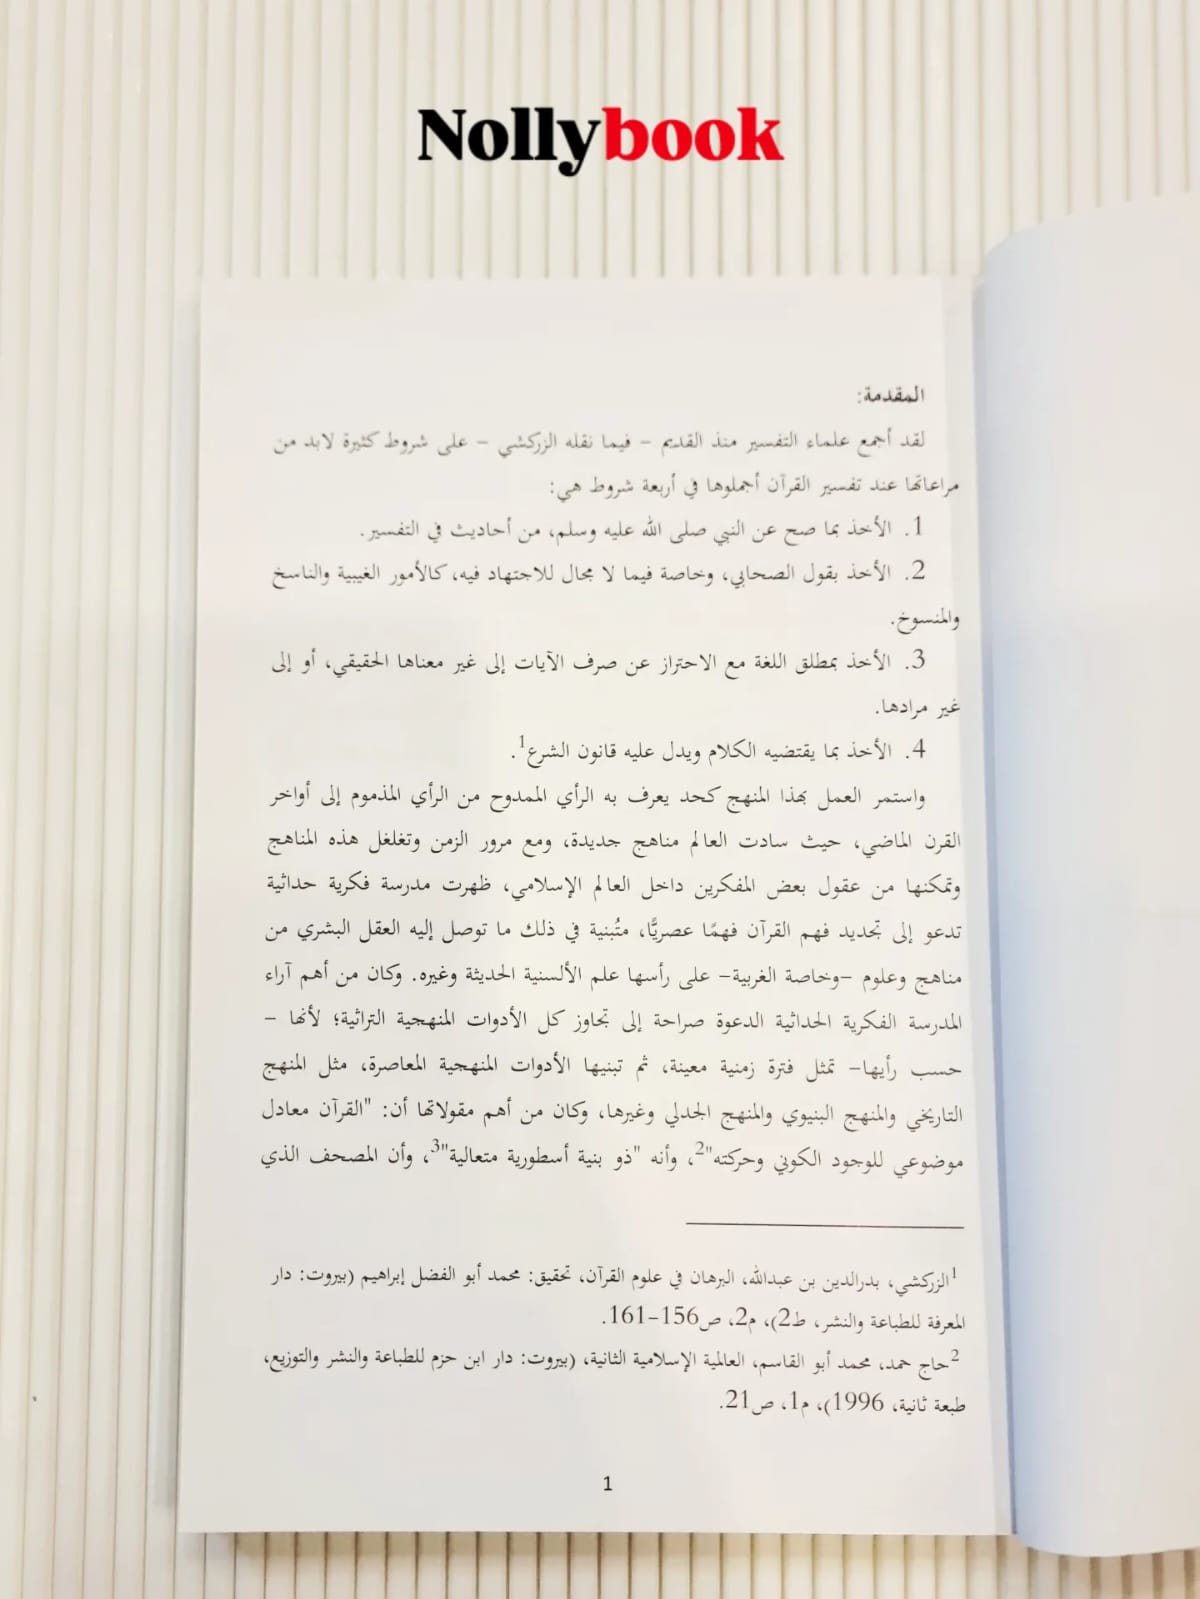 Nollybook
المقدمة:
لقد أجمع علماء التفسير منذ القديم – فيما نقله الزركشي – على شروط كثيرة لابد من
مراعاتها عند تفسير القرآن أجملوها في أربعة شروط هي:
1. الأخذ بما صح عن النبي صلى الله عليه وسلم، من أحاديث في التفسير.
2. الأخذ بقول الصحابي، وخاصة فيما لا مجال للاجتهاد فيه، كالأمور الغيبية والناسخ
والمنسوخ.
3. الأخذ بمطلق اللغة مع الاحتراز عن صرف الآيات إلى غير معناها الحقيقي، أو إلى
غير مرادها.
4. الأخذ بما يقتضيه الكلام ويدل عليه قانون الشرع1.
واستمر العمل بهذا المنهج كحد يعرف به الرأي الممدوح من الرأي المذموم إلى أواخر
القرن الماضي، حيث سادت العالم مناهج جديدة، ومع مرور الزمن وتغلغل هذه المناهج
وتمكنها من عقول بعض المفكرين داخل العالم الإسلامي، ظهرت مدرسة فكرية حداثية
تدعو إلى تجديد فهم القرآن فهمًا عصريًّا، متُبنية في ذلك ما توصل إليه العقل البشري من
مناهج وعلوم –وخاصة الغربية– على رأسها علم الألسنية الحديثة وغيره. وكان من أهم آراء
المدرسة الفكرية الحداثية الدعوة صراحة إلى تجاوز كل الأدوات المنهجية التراثية؛ لأنها –
حسب رأيها– تمثل فترة زمنية معينة، ثم تبنيها الأدوات المنهجية المعاصرة، مثل المنهج
التاريخي والمنهج البنيوي والمنهج الجدلي وغيرها، وكان من أهم مقولاتها أن: "القرآن معادل
موضوعي للوجود الكوني وحركته"2، وأنه "ذو بنية أسطورية متعالية"3، وأن المصحف الذي
1الزركشي، بدرالدين بن عبدالله، البرهان في علوم القرآن، تحقيق: محمد أبو الفضل إبراهيم (بيروت: دار
المعرفة للطباعة والنشر، ط2)، م2، ص156–161.
2حاج حمد، محمد أبو القاسم، العالمية الإسلامية الثانية، (بيروت: دار ابن حزم للطباعة والنشر والتوزيع،
طبعة ثانية، 1996)، م1، ص21.
1